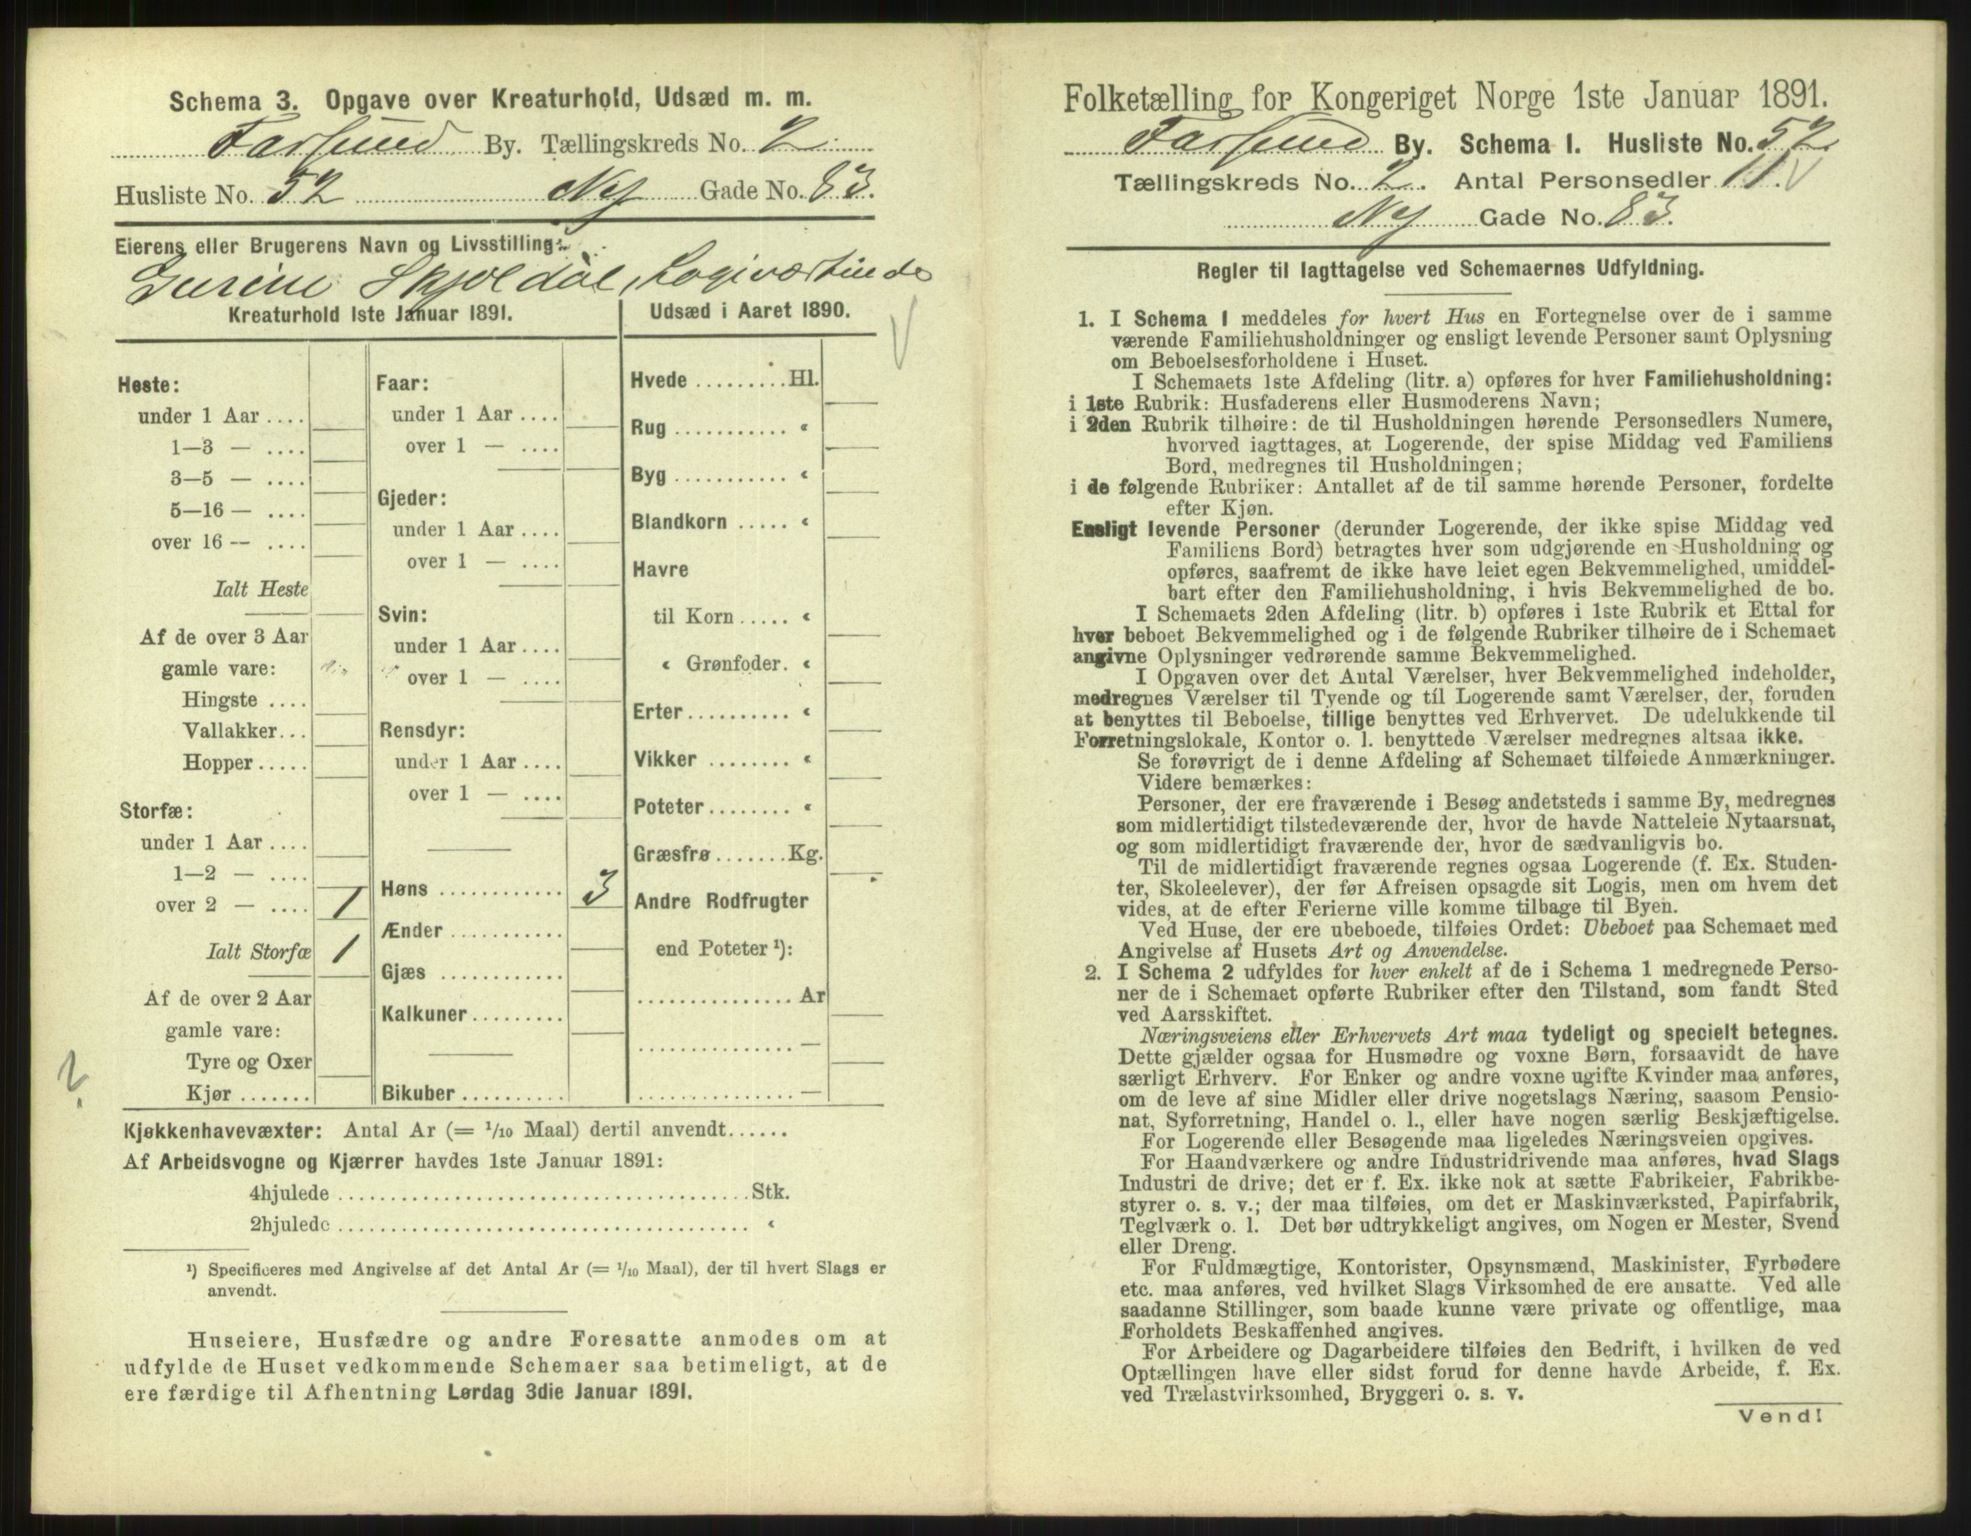 Schema 3. Opgave over Kreaturhold, Udsæd m. m.
Farsund By. Tællingskreds No. 2
Husliste No. 52 Ny Gade No. 83.
Eierens eller Brugerens Navn og Livsstilling:
Gurine Skjoldal, Logiværtinde
Kreaturhold 1ste Januar 1891.
Heste:
under 1 Aar ....
1—3 — ....
3—5 — ....
5—16 — ....
over 16 — ....
Ialt Heste
Af de over 3 Aar
gamle vare:
Hingste ....
Vallakker...
Hopper.....
Storfæ:
under 1 Aar ....
1—2 — ....
over 2 — .... 1
Ialt Storfæ 1
Af de over 2 Aar
gamle vare:
Tyre og Oxer
Kjør .......
Faar:
under 1 Aar ....
over 1 — ....
Gjeder:
under 1 Aar ....
over 1 — ....
Svin:
under 1 Aar ....
over 1 — ....
Rensdyr:
under 1 Aar ....
over 1 — ....
Høns ............ 3
Ænder ...........
Gjæs ............
Kalkuner.........
Bikuber ..........
Udsæd i Aaret 1890.
Hvede .........Hl.
Rug ........... «
Byg ........... «
Blandkorn ..... «
Havre
til Korn..... «
« Grønfoder. «
Erter.......... «
Vikker ........ «
Poteter........ «
Græsfrø.......Kg.
Andre Rodfrugter
end Poteter ¹):
............... Ar
............... —
............... —
Kjøkkenhavevæxter: Antal Ar (= 1/10 Maal) dertil anvendt......
Af Arbeidsvogne og Kjærrer havdes 1ste Januar 1891:
4hjulede ........................................Stk.
2hjulede ........................................ «
¹) Specificeres med Angivelse af det Antal Ar (= 1/10 Maal), der til hvert Slags er
anvendt.
Huseiere, Husfædre og andre Foresatte anmodes om at
udfylde de Huset vedkommende Schemaer saa betimeligt, at de
ere færdige til Afhentning Lørdag 3die Januar 1891.
Folketælling for Kongeriget Norge 1ste Januar 1891.
Farsund By. Schema 1. Husliste No. 52
Tællingskreds No. 2. Antal Personsedler 11.
Ny Gade No. 83.
Regler til Iagttagelse ved Schemaernes Udfyldning.
1. I Schema 1 meddeles for hvert Hus en Fortegnelse over de i samme
værende Familiehusholdninger og ensligt levende Personer samt Oplysning
om Beboelsesforholdene i Huset.
I Schemaets 1ste Afdeling (litr. a) opføres for hver Familiehusholdning:
i 1ste Rubrik: Husfaderens eller Husmoderens Navn;
i 2den Rubrik tilhøire: de til Husholdningen hørende Personsedlers Numere,
hvorved iagttages, at Logerende, der spise Middag ved Familiens
Bord, medregnes til Husholdningen;
i de følgende Rubriker: Antallet af de til samme hørende Personer, fordelte
efter Kjøn.
Ensligt levende Personer (derunder Logerende, der ikke spise Middag ved
Familiens Bord) betragtes hver som udgjørende en Husholdning og
opføres, saafremt de ikke have leiet egen Bekvemmelighed, umiddel-
bart efter den Familiehusholdning, i hvis Bekvemmelighed de bo.
I Schemaets 2den Afdeling (litr. b) opføres i 1ste Rubrik et Ettal for
hver beboet Bekvemmelighed og i de følgende Rubriker tilhøire de i Schemaet
angivne Oplysninger vedrørende samme Bekvemmelighed.
I Opgaven over det Antal Værelser, hver Bekvemmelighed indeholder,
medregnes Værelser til Tyende og til Logerende samt Værelser, der, foruden
at benyttes til Beboelse, tillige benyttes ved Erhvervet. De udelukkende til
Forretningslokale, Kontor o. l. benyttede Værelser medregnes altsaa ikke.
Se forøvrigt de i denne Afdeling af Schemaet tilføiede Anmærkninger.
Videre bemærkes:
Personer, der ere fraværende i Besøg andetsteds i samme By, medregnes
som midlertidigt tilstedeværende der, hvor de havde Natteleie Nytaarsnat,
og som midlertidigt fraværende der, hvor de sædvanligvis bo.
Til de midlertidigt fraværende regnes ogsaa Logerende (f. Ex. Studen-
ter, Skoleelever), der før Afreisen opsagde sit Logis, men om hvem det
vides, at de efter Ferierne ville komme tilbage til Byen.
Ved Huse, der ere ubeboede, tilføies Ordet: Ubeboet paa Schemaet med
Angivelse af Husets Art og Anvendelse.
2. I Schema 2 udfyldes for hver enkelt af de i Schema 1 medregnede Perso-
ner de i Schemaet opførte Rubriker efter den Tilstand, som fandt Sted
ved Aarsskiftet.
Næringsveiens eller Erhvervets Art maa tydeligt og specielt betegnes.
Dette gjælder ogsaa for Husmødre og voxne Børn, forsaavidt de have
særligt Erhverv. For Enker og andre voxne ugifte Kvinder maa anføres,
om de leve af sine Midler eller drive nogetslags Næring, saasom Pensio-
nat, Syforretning, Handel o. l., eller have nogen særlig Beskjæftigelse.
For Logerende eller Besøgende maa ligeledes Næringsveien opgives.
For Haandværkere og andre Industridrivende maa anføres, hvad Slags
Industri de drive; det er f. Ex. ikke nok at sætte Fabrikeier, Fabrikbe-
styrer o. s. v.; der maa tilføies, om det er Maskinværksted, Papirfabrik,
Teglværk o. l. Det bør udtrykkeligt angives, om Nogen er Mester, Svend
eller Dreng.
For Fuldmægtige, Kontorister, Opsynsmænd, Maskinister, Fyrbødere
etc. maa anføres, ved hvilket Slags Virksomhed de ere ansatte. Ved alle
saadanne Stillinger, som baade kunne være private og offentlige, maa
Forholdets Beskaffenhed angives.
For Arbeidere og Dagarbeidere tilføies den Bedrift, i hvilken de ved
Optællingen have eller sidst forud for denne havde Arbeide, f. Ex.
ved Trælastvirksomhed, Bryggeri o. s. v.
Vend!